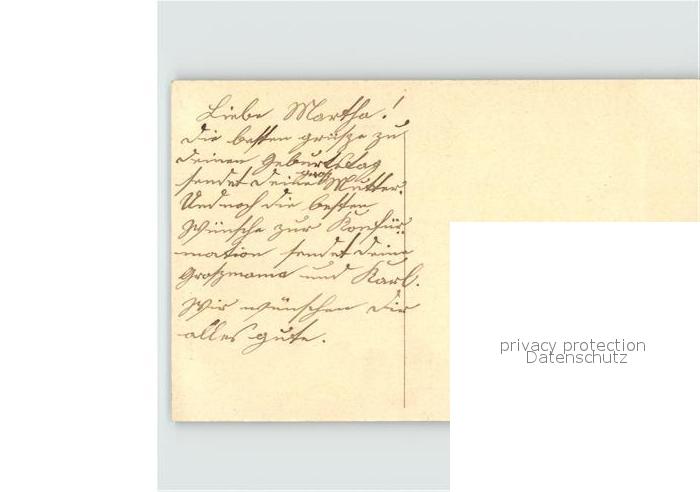 Liebe Martha!
die besten grüsze zu
deinen Geburtstag
sendet deine Grosz Mutter.
Und noch die besten
Wünsche zur Konfür-
mation sendet deine
Groszmama und Karl.
Wir wünschen dir
alles gute.
privacy protection
Datenschutz